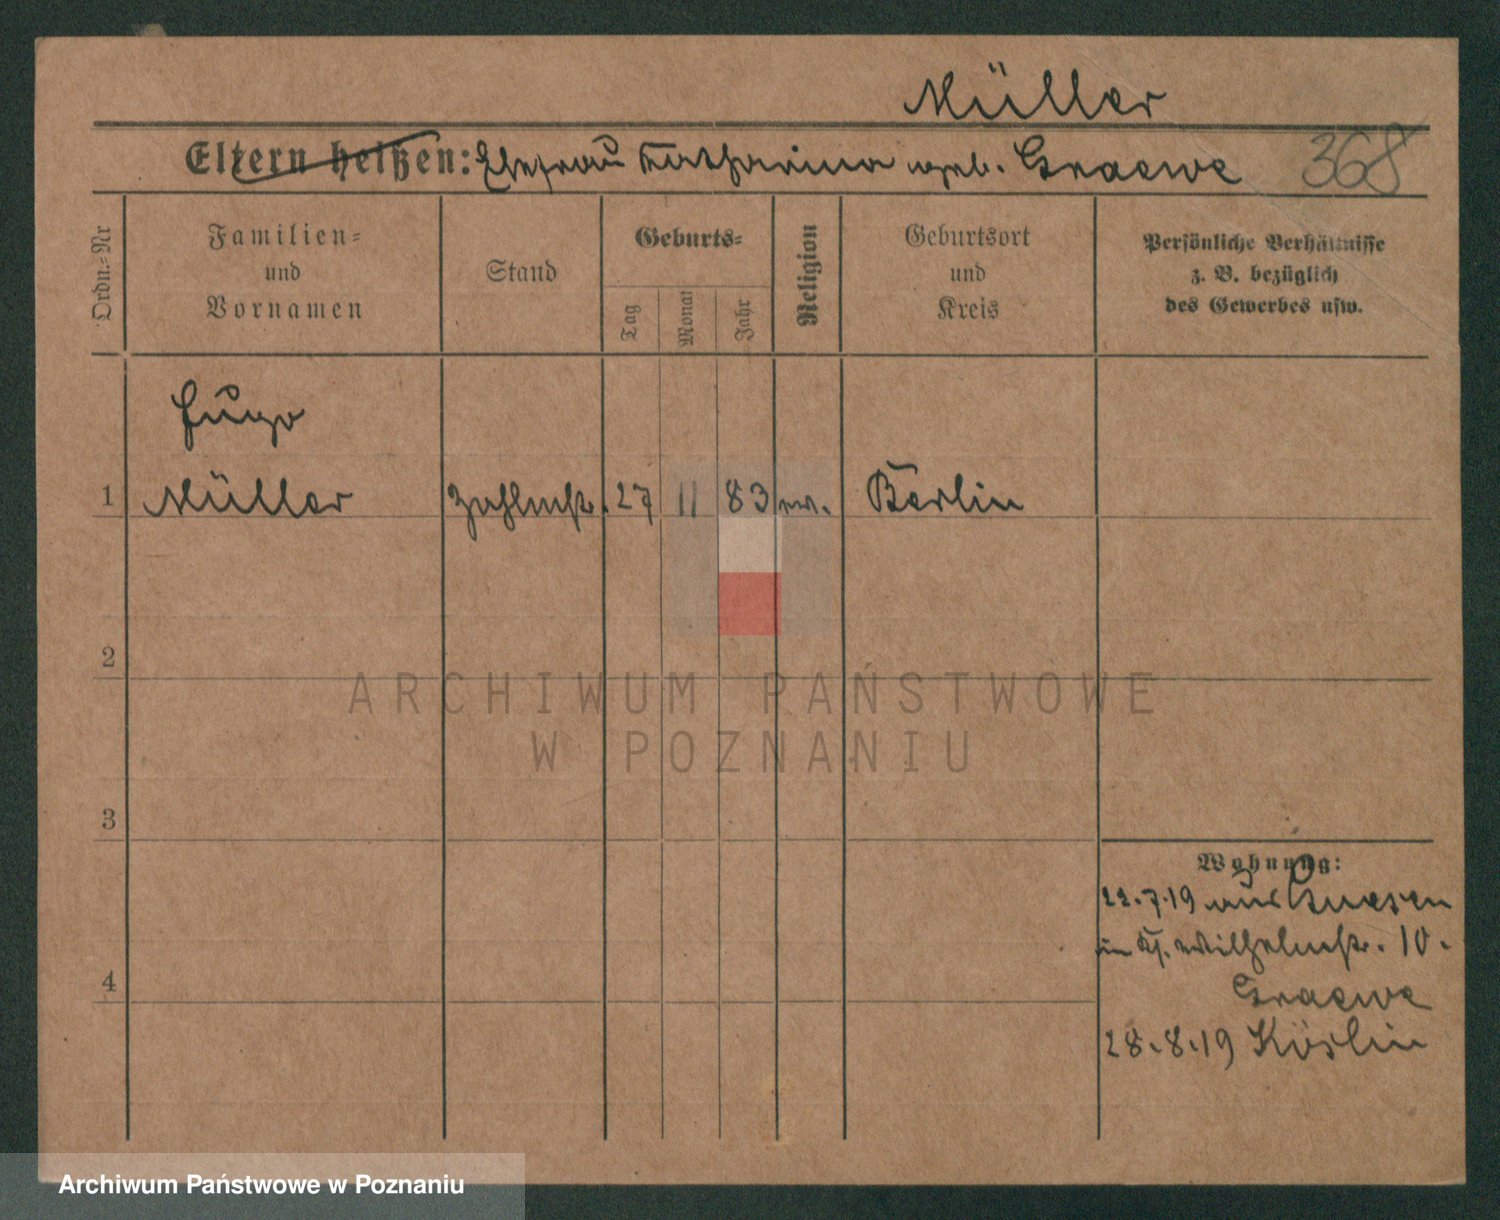 Müller
Eltern heißen: Ehefrau Katharina geb. Graewe 368
Ordn.-Nr
Familien-
und
Vornamen
Stand
Geburts-
Tag
Monat
Jahr
Religion
Geburtsort
und
Kreis
Persönliche Verhältnisse
z. B. bezüglich
des Gewerbes usw.
Hugo
1 Müller Zahlmstr. 27 11 83 ev. Berlin
2
3
4
Wohnung:
22.7.19 aus Gnesen
Wilhelmstr. 10.
Graewe
28.8.19 Köslin
ARCHIWUM PAŃSTWOWE
W POZNANIU
Archiwum Państwowe w Poznaniu